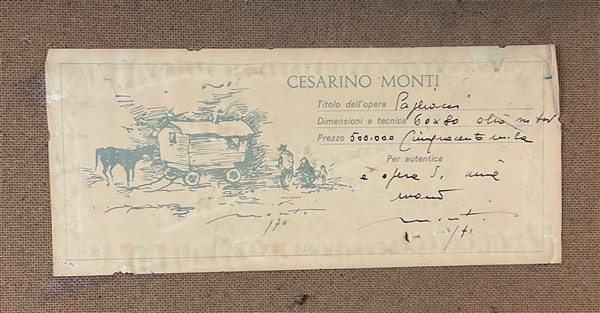 CESARINO MONTI
Titolo dell'opera Pagliacci
Dimensioni e tecnica 60x80 olio su tela
Prezzo 500.000 Cinquecentomila
Per autentica
è opera di mia
mano
Monti
Monti
/70